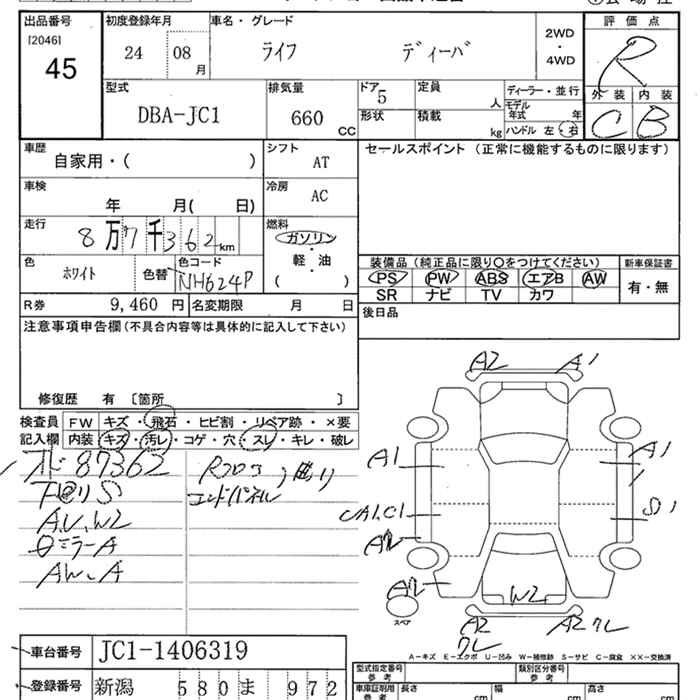 出品番号 初度登録年月 車名・グレード 評価点
[2046]
45
24 08月 ライフ ディーバ 2WD・4WD R
型式 排気量 ドア 定員 ディーラー・並行 外装 内装
DBA-JC1 660 CC 5 人 モデル年式 年 C B
形状 積載 kg ハンドル 左・右
車歴 自家用・( ) シフト AT セールスポイント (正常に機能するものに限ります)
車検 年 月( 日) 冷房 AC
走行 8万7千362km 燃料 ガソリン・軽油・( )
色 ホワイト 色替 色コード NH624P
装備品 (純正品に限り○をつけてください) 新車保証書
PS PW ABS エアB AW 有・無
SR ナビ TV カワ
R券 9,460 円 名変期限 月 日 後日品
注意事項申告欄 (不具合内容等は具体的に記入して下さい)
修復歴 有 〔箇所 〕
検査員記入欄 FW キズ・飛石・ヒビ割・リペア跡・×要
内装 キズ・汚レ・コゲ・穴・スレ・キレ・破レ
87362
エンドパネル
A,U,W2
ミラーA
AW、A
A2 A1
A1 A1
UA1,C1 S1
A2
A2
W2
スペア
A2 クレ A2 クレ
A-キズ E-エクボ U-凹み W-補修跡 S-サビ C-腐食 XX-交換済
車台番号 JC1-1406319
登録番号 新潟 580 ま 972
型式指定番号 参考 類別区分番号 参考
車庫証明用 参考 長さ cm 幅 cm 高さ cm